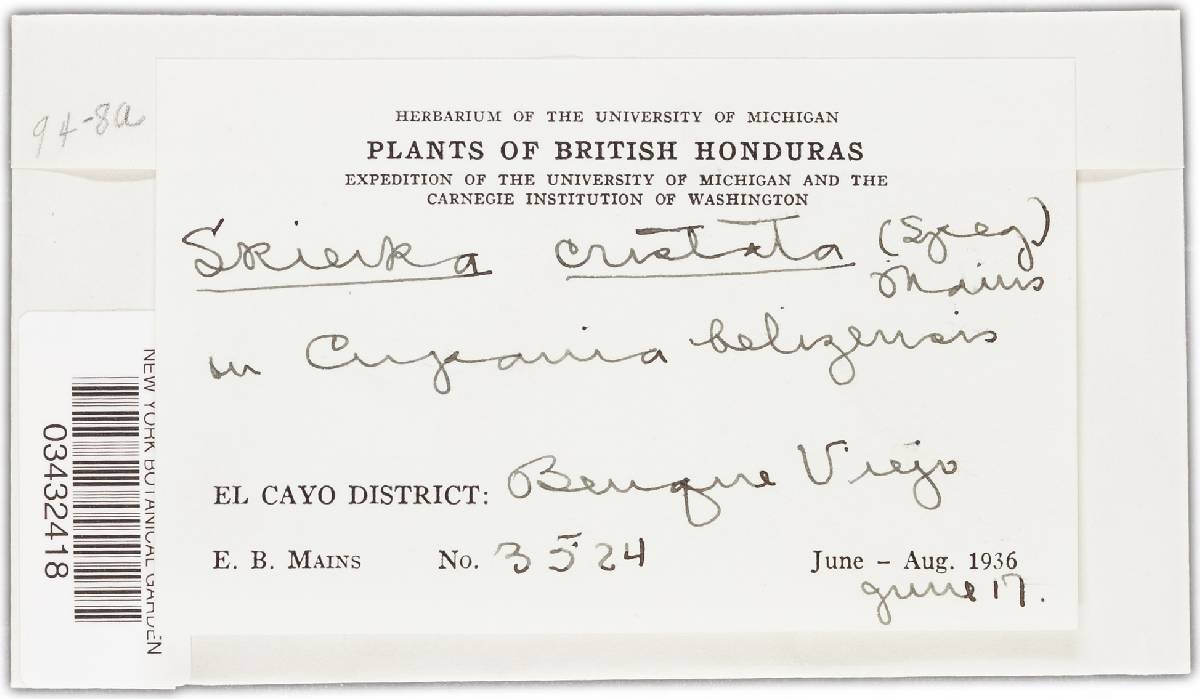 94-8a
HERBARIUM OF THE UNIVERSITY OF MICHIGAN
PLANTS OF BRITISH HONDURAS
EXPEDITION OF THE UNIVERSITY OF MICHIGAN AND THE
CARNEGIE INSTITUTION OF WASHINGTON
Skierka cristata (Speg)
Mains
on Cupania belizensis
EL CAYO DISTRICT: Benque Viejo
E. B. MAINS No. 3524 June – Aug. 1936
June 17.
NEW YORK BOTANICAL GARDEN
03432418